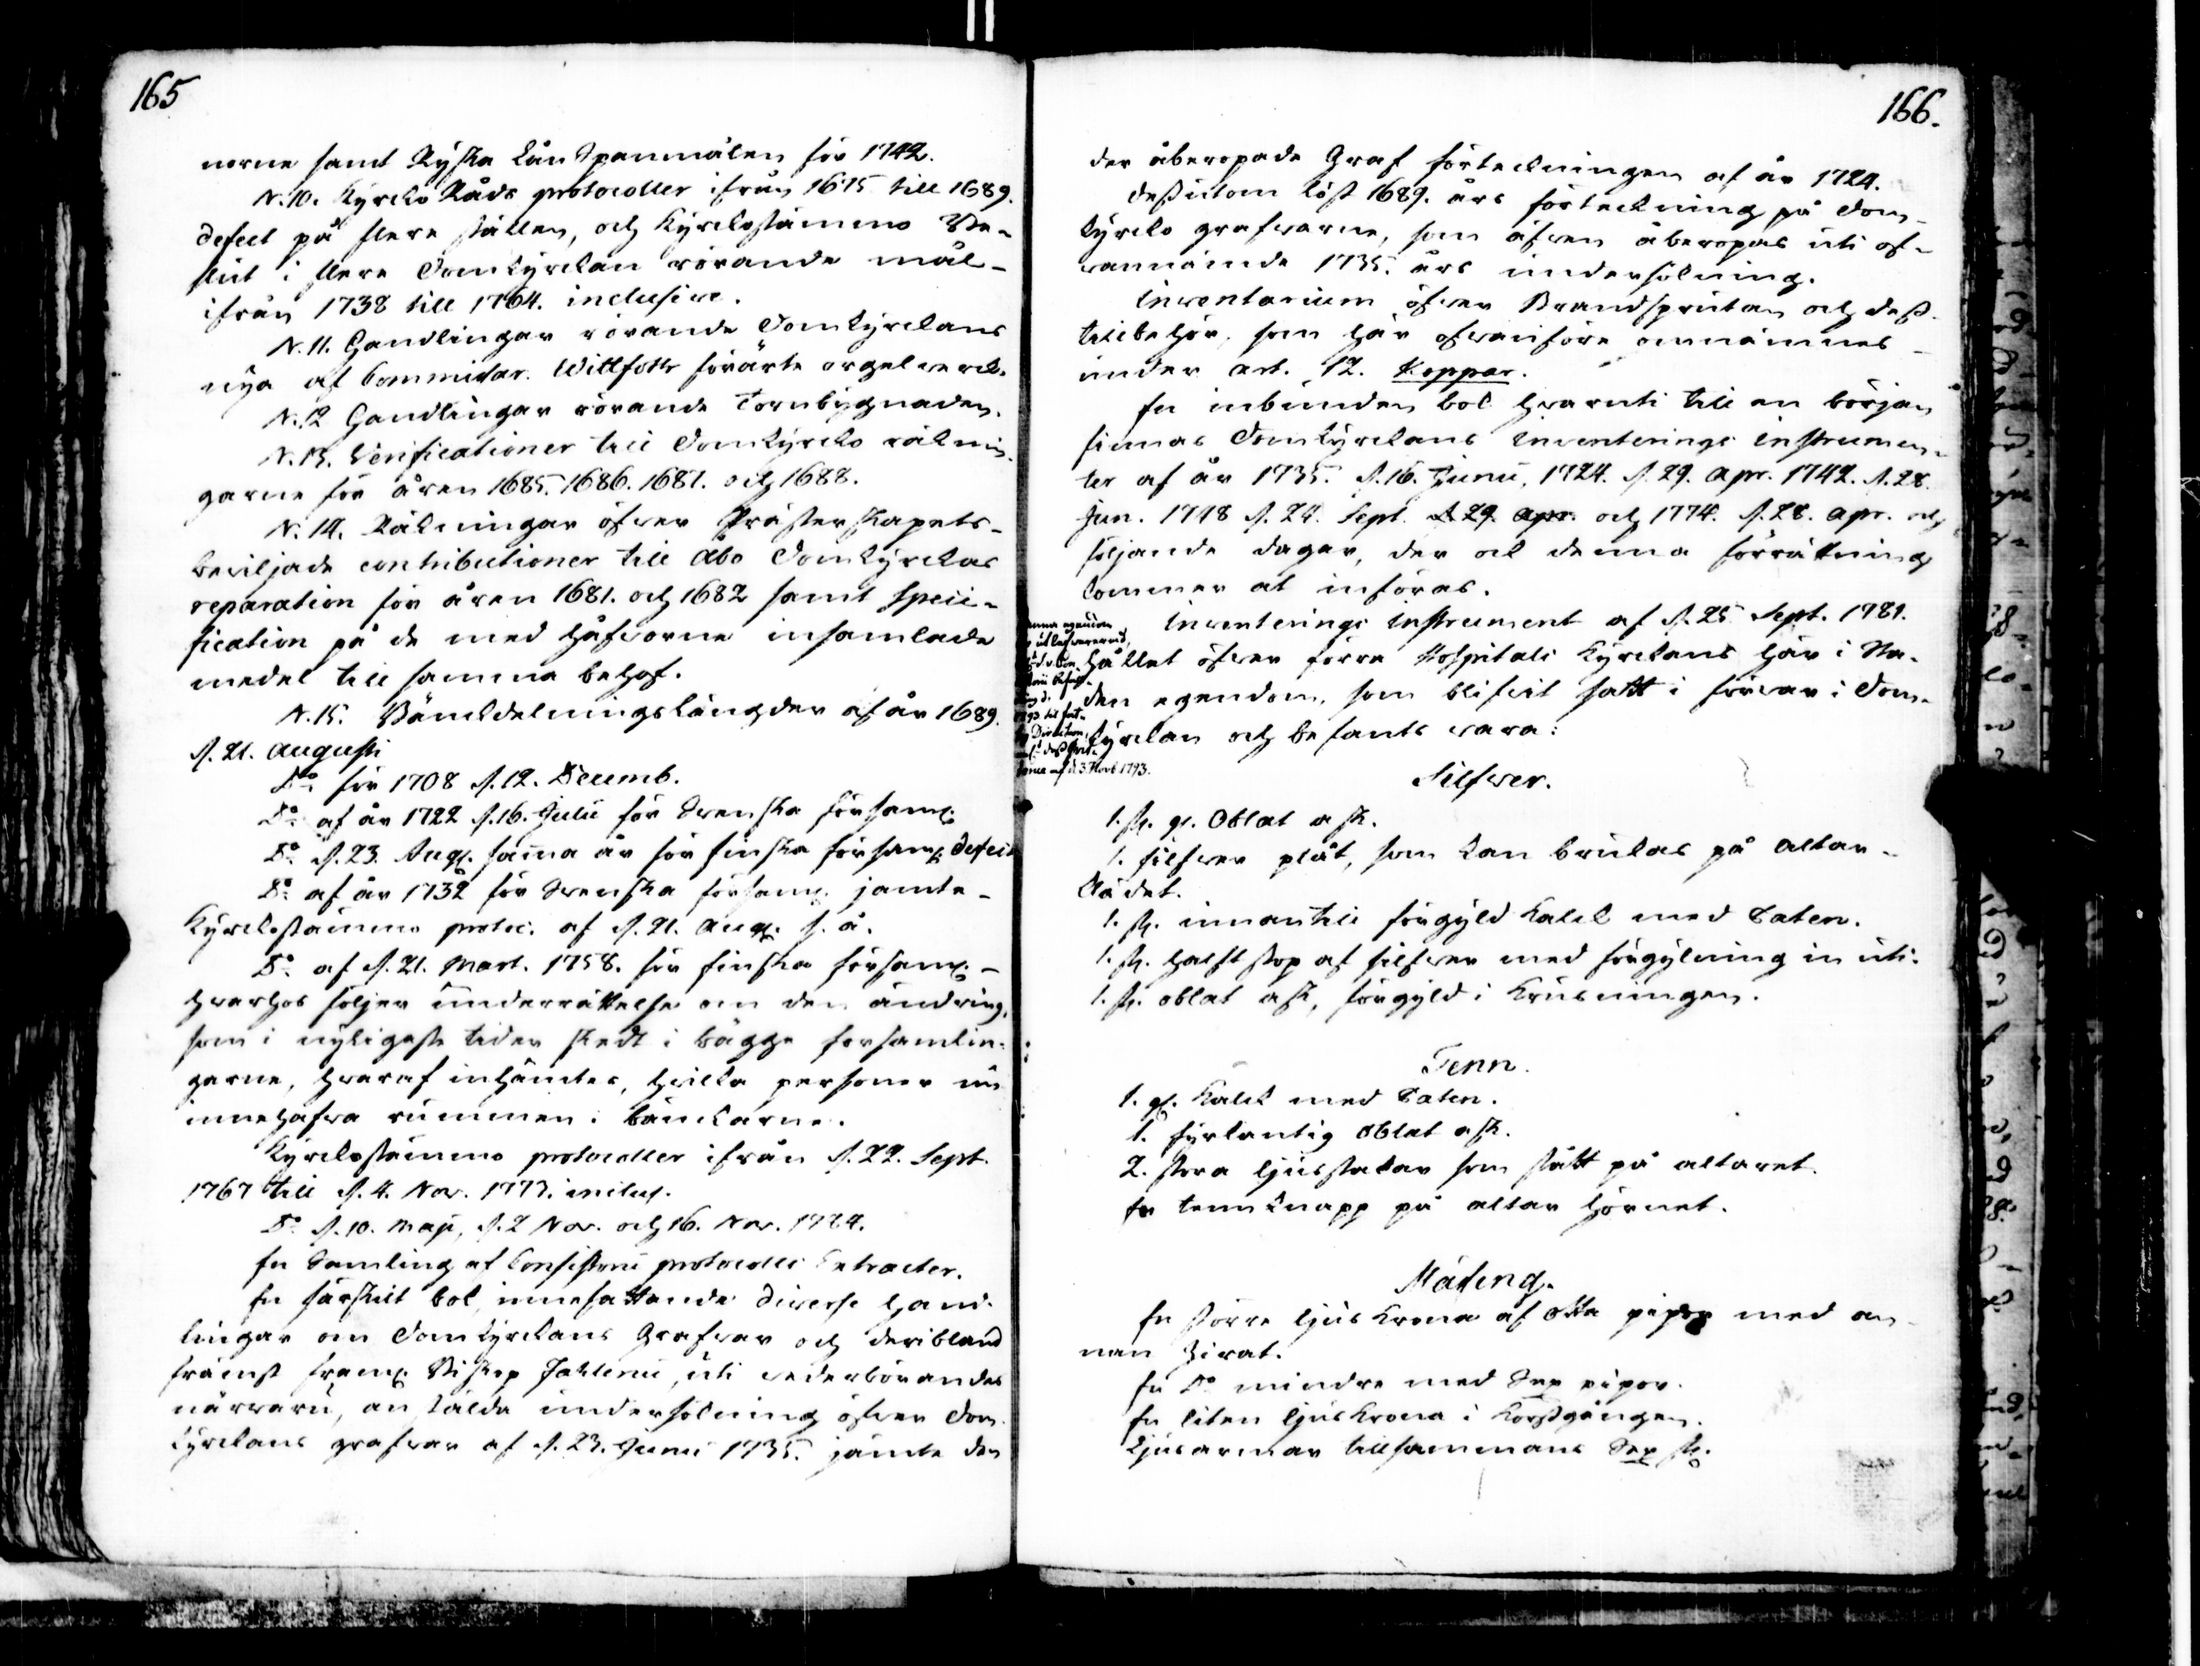 165
norne samt Ryska Lån Spanmålen för 1742.
N. 10. Kyrcko Råds protocoller ifrån 1675 till 1689.
defect på flere ställen, och Kyrckostämmo Be-
slut i flere Domkyrckan rörande mål-
ifrån 1738 till 1764. inclusive.
N. 11. Handlingar rörande Domkyrckans
nya af Commissar. Wittfoth förärte orgelverck.
N. 12 Handlingar rörande Tornbygnaden.
N. 13. Verificationer till Domkyrcko räknin-
garne för åren 1685. 1686. 1687. och 1688.
N. 14. Räkningar öfwer Prästerskapets-
bewiljade contributioner till Åbo Domkyrckas
reparation för åren 1681. och 1682 samt speci-
fication på de med håfvorne insamlade
medel till samma behof.
N. 15. Bänckdelningslängder af år 1689.
d. 21. Augusti
Do för 1708 d. 12. Decemb.
Do af år 1722 d. 16. Julii för Swenska församl.
Do d. 23. Aug. sama år för finska församl. defect
Do af år 1732 för Swenska församl. jämte-
Kyrckostämmo protoc. af d. 21. Aug. s. å.
Do af d. 21. Mart. 1758. för finska församl. -
hvarhos följer underrättelse om den ändring,
som i nyligaste tider skedt i bägge församlin-
garne, hvaraf inhämtes, hvilka personer nu
innehafwa rummen i bänckarne.
Kyrckostämmo protocoller ifrån d. 22. Sept.
1767 till d. 4. Nov. 1773. inclus.
Do d. 10. Maji, d. 2 Nov. och 16. Nov. 1724.
En Samling af Consistorii protocolls Extracter.
En särskilt bok, innefattande diverse Hand-
lingar om Domkyrckans Grafwar och deribland
främst framl. Biskop Fahlenii, uti wederbörandes
närwaru, anstälda undersökning öfwer Dom-
kyrckans grafwar af d. 23. Junii 1735. jämte den
166.
der åberopade Graf förteckningen af år 1724.
Dessutom löst 1689. års förteckning på Dom-
kyrcko grafwarne, som äfwen åberopas uti of-
wannämde 1735. års undersökning.
Inventarium öfwer Brandsprutan och dess
tillbehör, som här ofwanföre omnämnes
under art. 12. Koppar.
En inbunden bok hvaruti till en början
finnas Domkyrckans Inventerings Instrumen-
ter af år 1735. d. 16. Junii, 1724. d. 29. Apr. 1742. d. 28.
Jun. 1748 d. 24. Sept. d. 29. Apr. och 1774. d. 28. Apr. och
följande dagar, der ock denna förrättning
kommer at införas.
Inventerings Instrument af d. 25 Sept. 1781.
hållet öfwer förra Hospitals Kyrckans här i Sta-
den egendom, som blifwit satt i förwar i Dom-
kyrckan och befants wara:
Silfwer.
1. st. gl. Oblat ask.
1. silfwer plåt, som kan brukas på altar-
klädet.
1. st. innantill förgyld kalck med Paten.
1. st. halft stop af silfwer med förgylning inuti.
1. st. oblat ask, förgyld i Krusningen.
Tenn.
1. gl. Kalck med Paten.
1. fyrkantig Oblat ask.
2. stora ljusstakar som stått på altaret.
En tenn Knapp på altar hörnet.
Mässing.
En större ljus Krona af otta pipor med an-
nan Zirat.
En Do mindre med Sex pipor.
En liten ljus Krona i Korsgången.
Ljusarmar tillsammans Sex st.